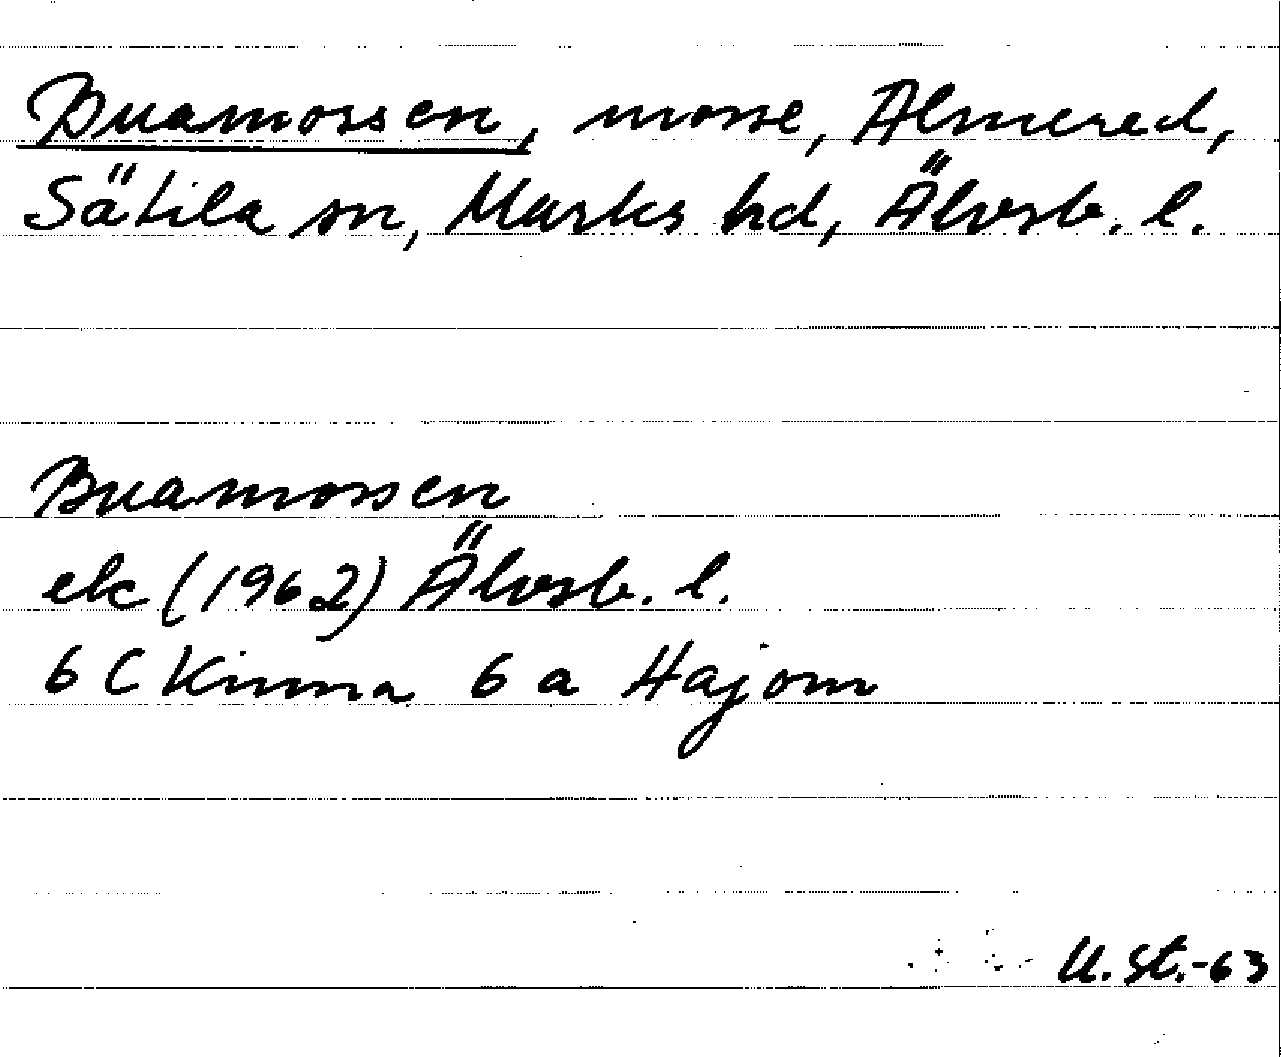 Buamossen, mosse, Älmered,
Sätila sn, Marks hd, Älvsb. l.
Buamossen
ek (1962) Älvsb. l.
6 C Kinna 6 a Hajom
U. St.-63